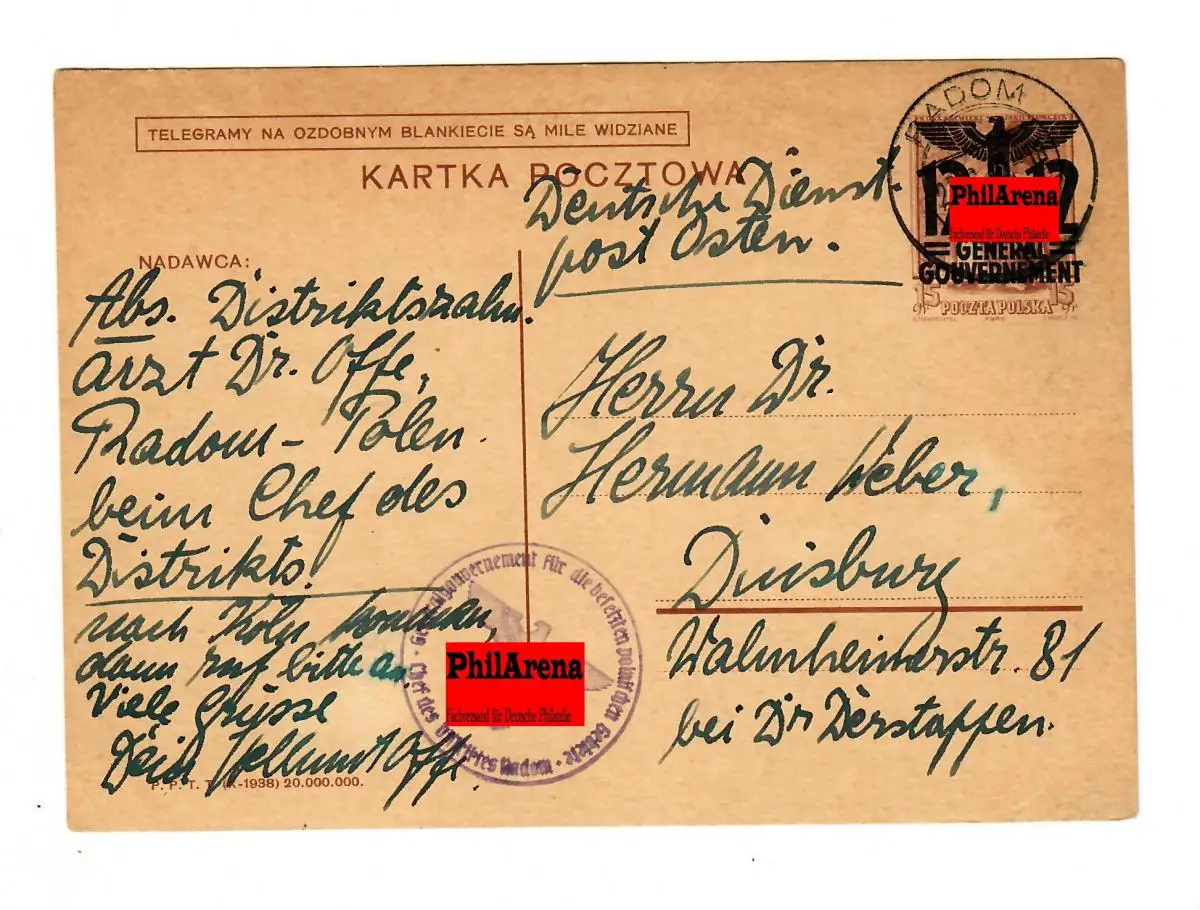 TELEGRAMY NA OZDOBNYM BLANKIECIE SĄ MILE WIDZIANE
KARTKA POCZTOWA
Deutsche Dienst-
post Osten.
RADOM
12 12
PhilArena
Fachversand für Deutsche Philatelie
GENERAL-
GOUVERNEMENT
15 gr POCZTA POLSKA 15 gr
NADAWCA:
Abs. Distriktszahn-
arzt Dr. Offe,
Radom - Polen.
beim Chef des
Distrikts.
nach Köln kommen,
dann ruf bitte an.
Viele Grüsse
Dein Hellmut Offe
Herrn Dr.
Hermann Weber,
Duisburg
Walmheimerstr. 81
bei Dr Derstappen.
Generalgouvernement für die besetzten polnischen Gebiete
Chef des Distriktes Radom
PhilArena
Fachversand für Deutsche Philatelie
P. P. T. T. (X-1938) 20.000.000.